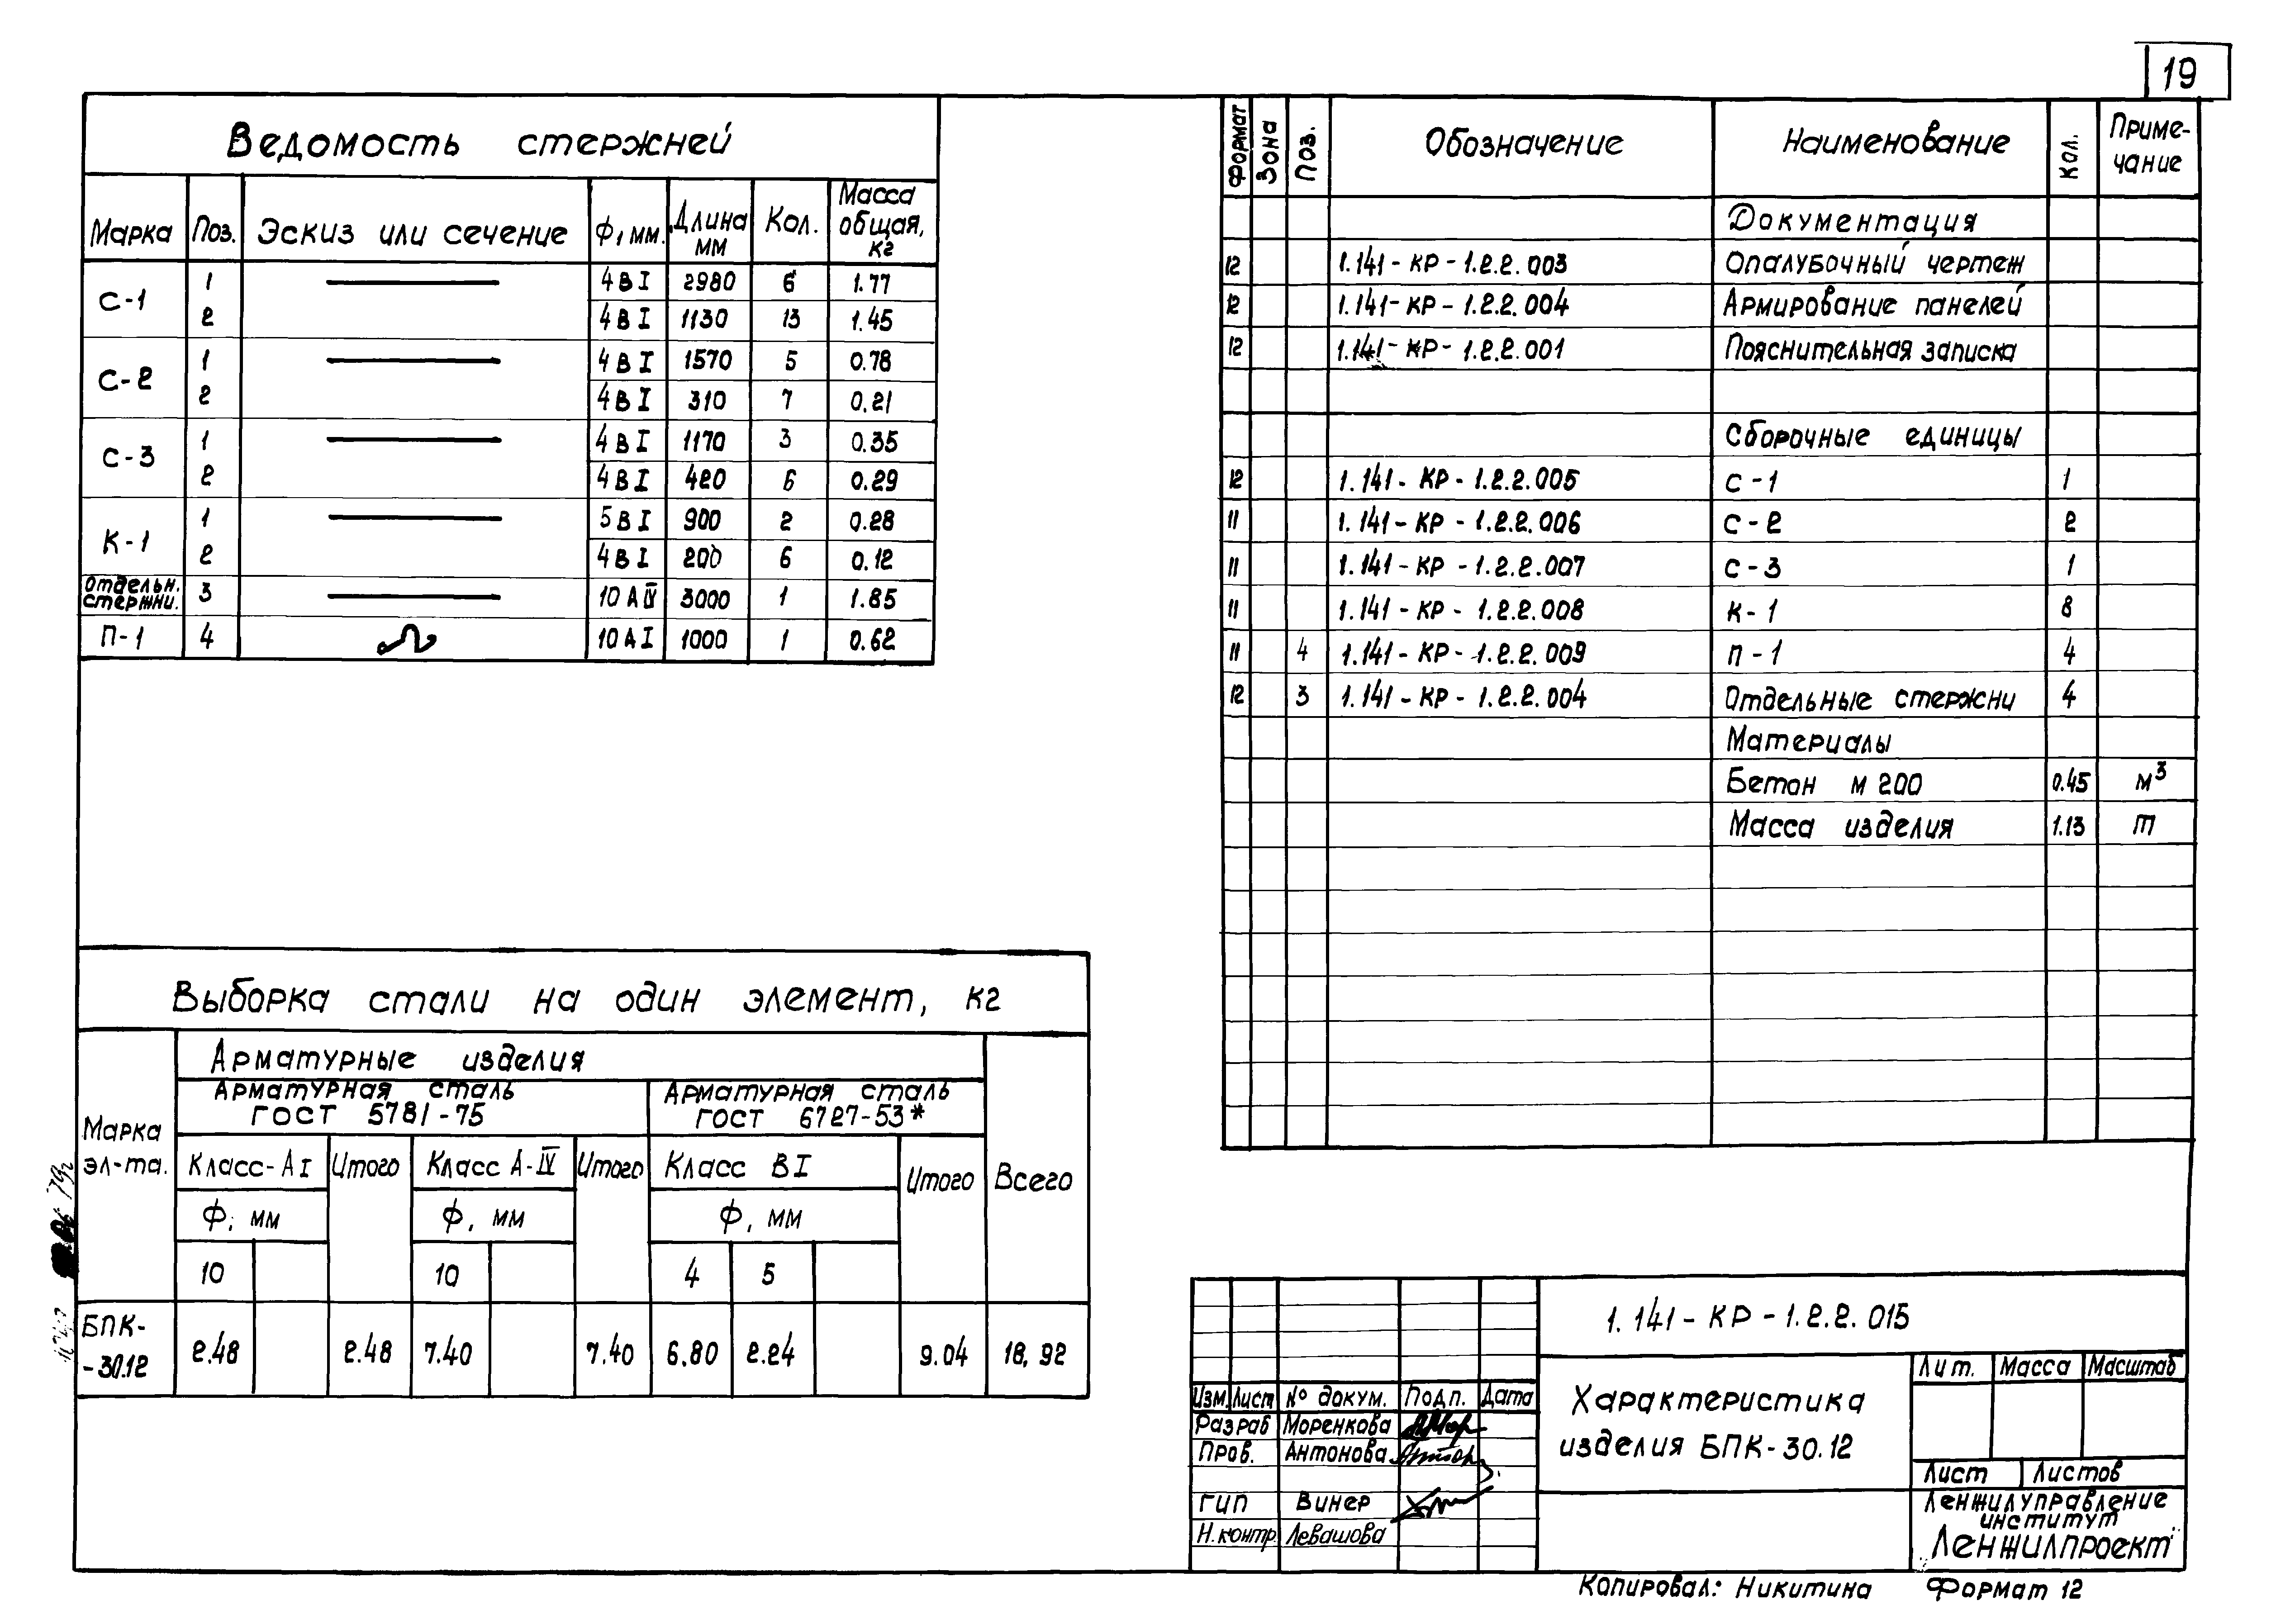 19
Ведомость стержней
Марка Поз. Эскиз или сечение Ф, мм. Длина мм Кол. Масса общая, кг
С-1 1 4 В I 2980 6 1.77
2 4 В I 1130 13 1.45
С-2 1 4 В I 1570 5 0.78
2 4 В I 310 7 0.21
С-3 1 4 В I 1170 3 0.35
2 4 В I 420 6 0.29
К-1 1 5 В I 900 2 0.28
2 4 В I 200 6 0.12
отдельн. стержни. 3 10 А IV 3000 1 1.85
П-1 4 10 А I 1000 1 0.62
Выборка стали на один элемент, кг
Марка эл-та.
Арматурные изделия
Арматурная сталь ГОСТ 5781-75
Арматурная сталь ГОСТ 6727-53*
Класс-А I Итого Класс А-IV Итого Класс В I Итого Всего
Ф, мм Ф, мм Ф, мм
10 10 4 5
БПК-
-30.12 2.48 2.48 7.40 7.40 6.80 2.24 9.04 18,92
Формат Зона Поз. Обозначение Наименование Кол. Приме-
чание
Документация
12 1.141-КР-1.2.2.003 Опалубочный чертеж
12 1.141-КР-1.2.2.004 Армирование панелей
12 1.141-КР-1.2.2.001 Пояснительная записка
Сборочные единицы
12 1.141-КР-1.2.2.005 С-1 1
11 1.141-КР-1.2.2.006 С-2 2
11 1.141-КР-1.2.2.007 С-3 1
11 1.141-КР-1.2.2.008 К-1 8
11 4 1.141-КР-1.2.2.009 П-1 4
12 3 1.141-КР-1.2.2.004 Отдельные стержни 4
Материалы
Бетон М 200 0.45 м³
Масса изделия 1.13 т
1.141-КР-1.2.2.015
Изм. Лист № докум. Подп. Дата
Разраб Моренкова
Пров. Антонова
ГИП Винер
Н.контр. Левашова
Характеристика
изделия БПК-30.12
Лит. Масса Масштаб
Лист Листов
Ленжилуправление
институт
Ленжилпроект
Копировал: Никитина Формат 12